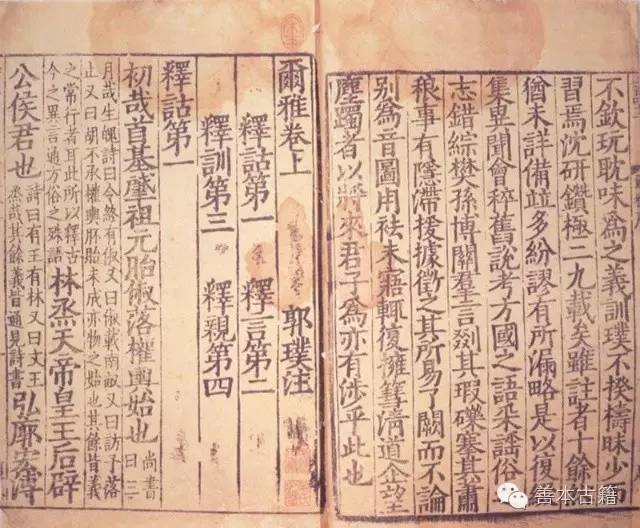 不欽玩耽味為之義訓璞不揆檮昧少而
習焉沈研鑽極二九載矣雖註者十餘然
猶未詳備竝多紛謬有所漏略是以復
集異聞會稡舊說考方國之語采謠俗
志錯綜樊孫博關羣言剟其瑕礫搴其蕭
稂事有隱滯援據徵之其所易了闕而不論
別為音圖用祛未寤輒復擁篲清道企望
塵躅者以將來君子為亦有涉乎此也
爾雅卷上 郭璞注
釋詁第一 釋言第二
釋訓第三 釋親第四
釋詁第一
初哉首基肇祖元胎俶落權輿始也 尚書曰三
月哉生魄詩曰令終有俶又曰俶載南畝又曰訪予落
止又曰胡不承權輿胚胎未成亦物之始也其餘皆義
之常行者耳此所以釋古
今之異言通方俗之殊語 林烝天帝皇王后辟
公侯君也 詩曰有王有林又曰文王
烝哉其餘義皆通見詩書 弘廓宏溥
善本古籍